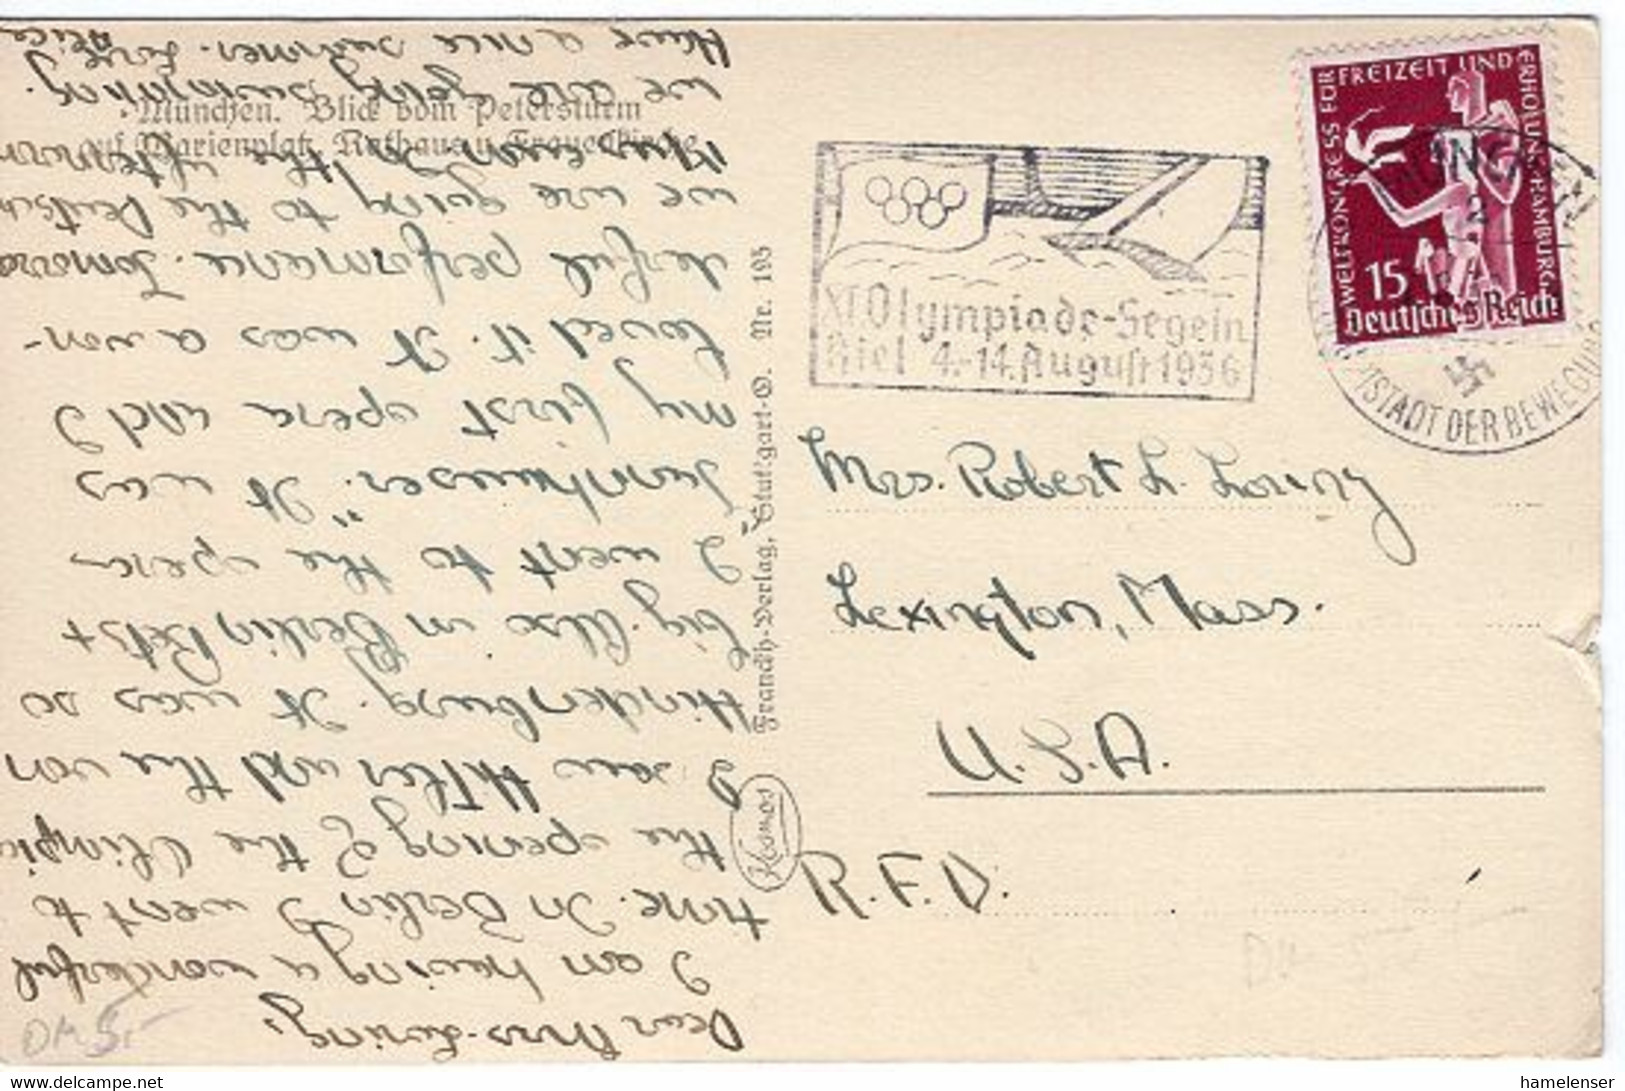 Dear Mrs. Loring,
I am having a wonderful
time. In Berlin I went to
the opening of the Olimpic
I saw Hitler and the von
Hindenburg. It was so
big. Also in Berlin
I went to the opera
"Tannhauser". It was
my first opera and I
loved it. It was a won-
derful performance. Tomorrow
we are going to the Deutsch
Museum In the afternoon
we are going swimming.
Have a nice summer. Love
Alice
München. Blick vom Petersturm
auf Marienplatz, Rathaus u. Frauenkirche
Franckh-Verlag, Stuttgart-O. Nr. 195
Kosmos
XI Olympiade-Segeln
Kiel 4.-14. August 1936
WELTKONGRESS FÜR FREIZEIT UND ERHOLUNG HAMBURG.
15
Deutsches Reich
TSTADT DER BEWEGUNG
Mrs. Robert L. Loring
Lexington, Mass.
U.S.A.
R.F.D.
DM 5,-
www.delcampe.net
hamelenser